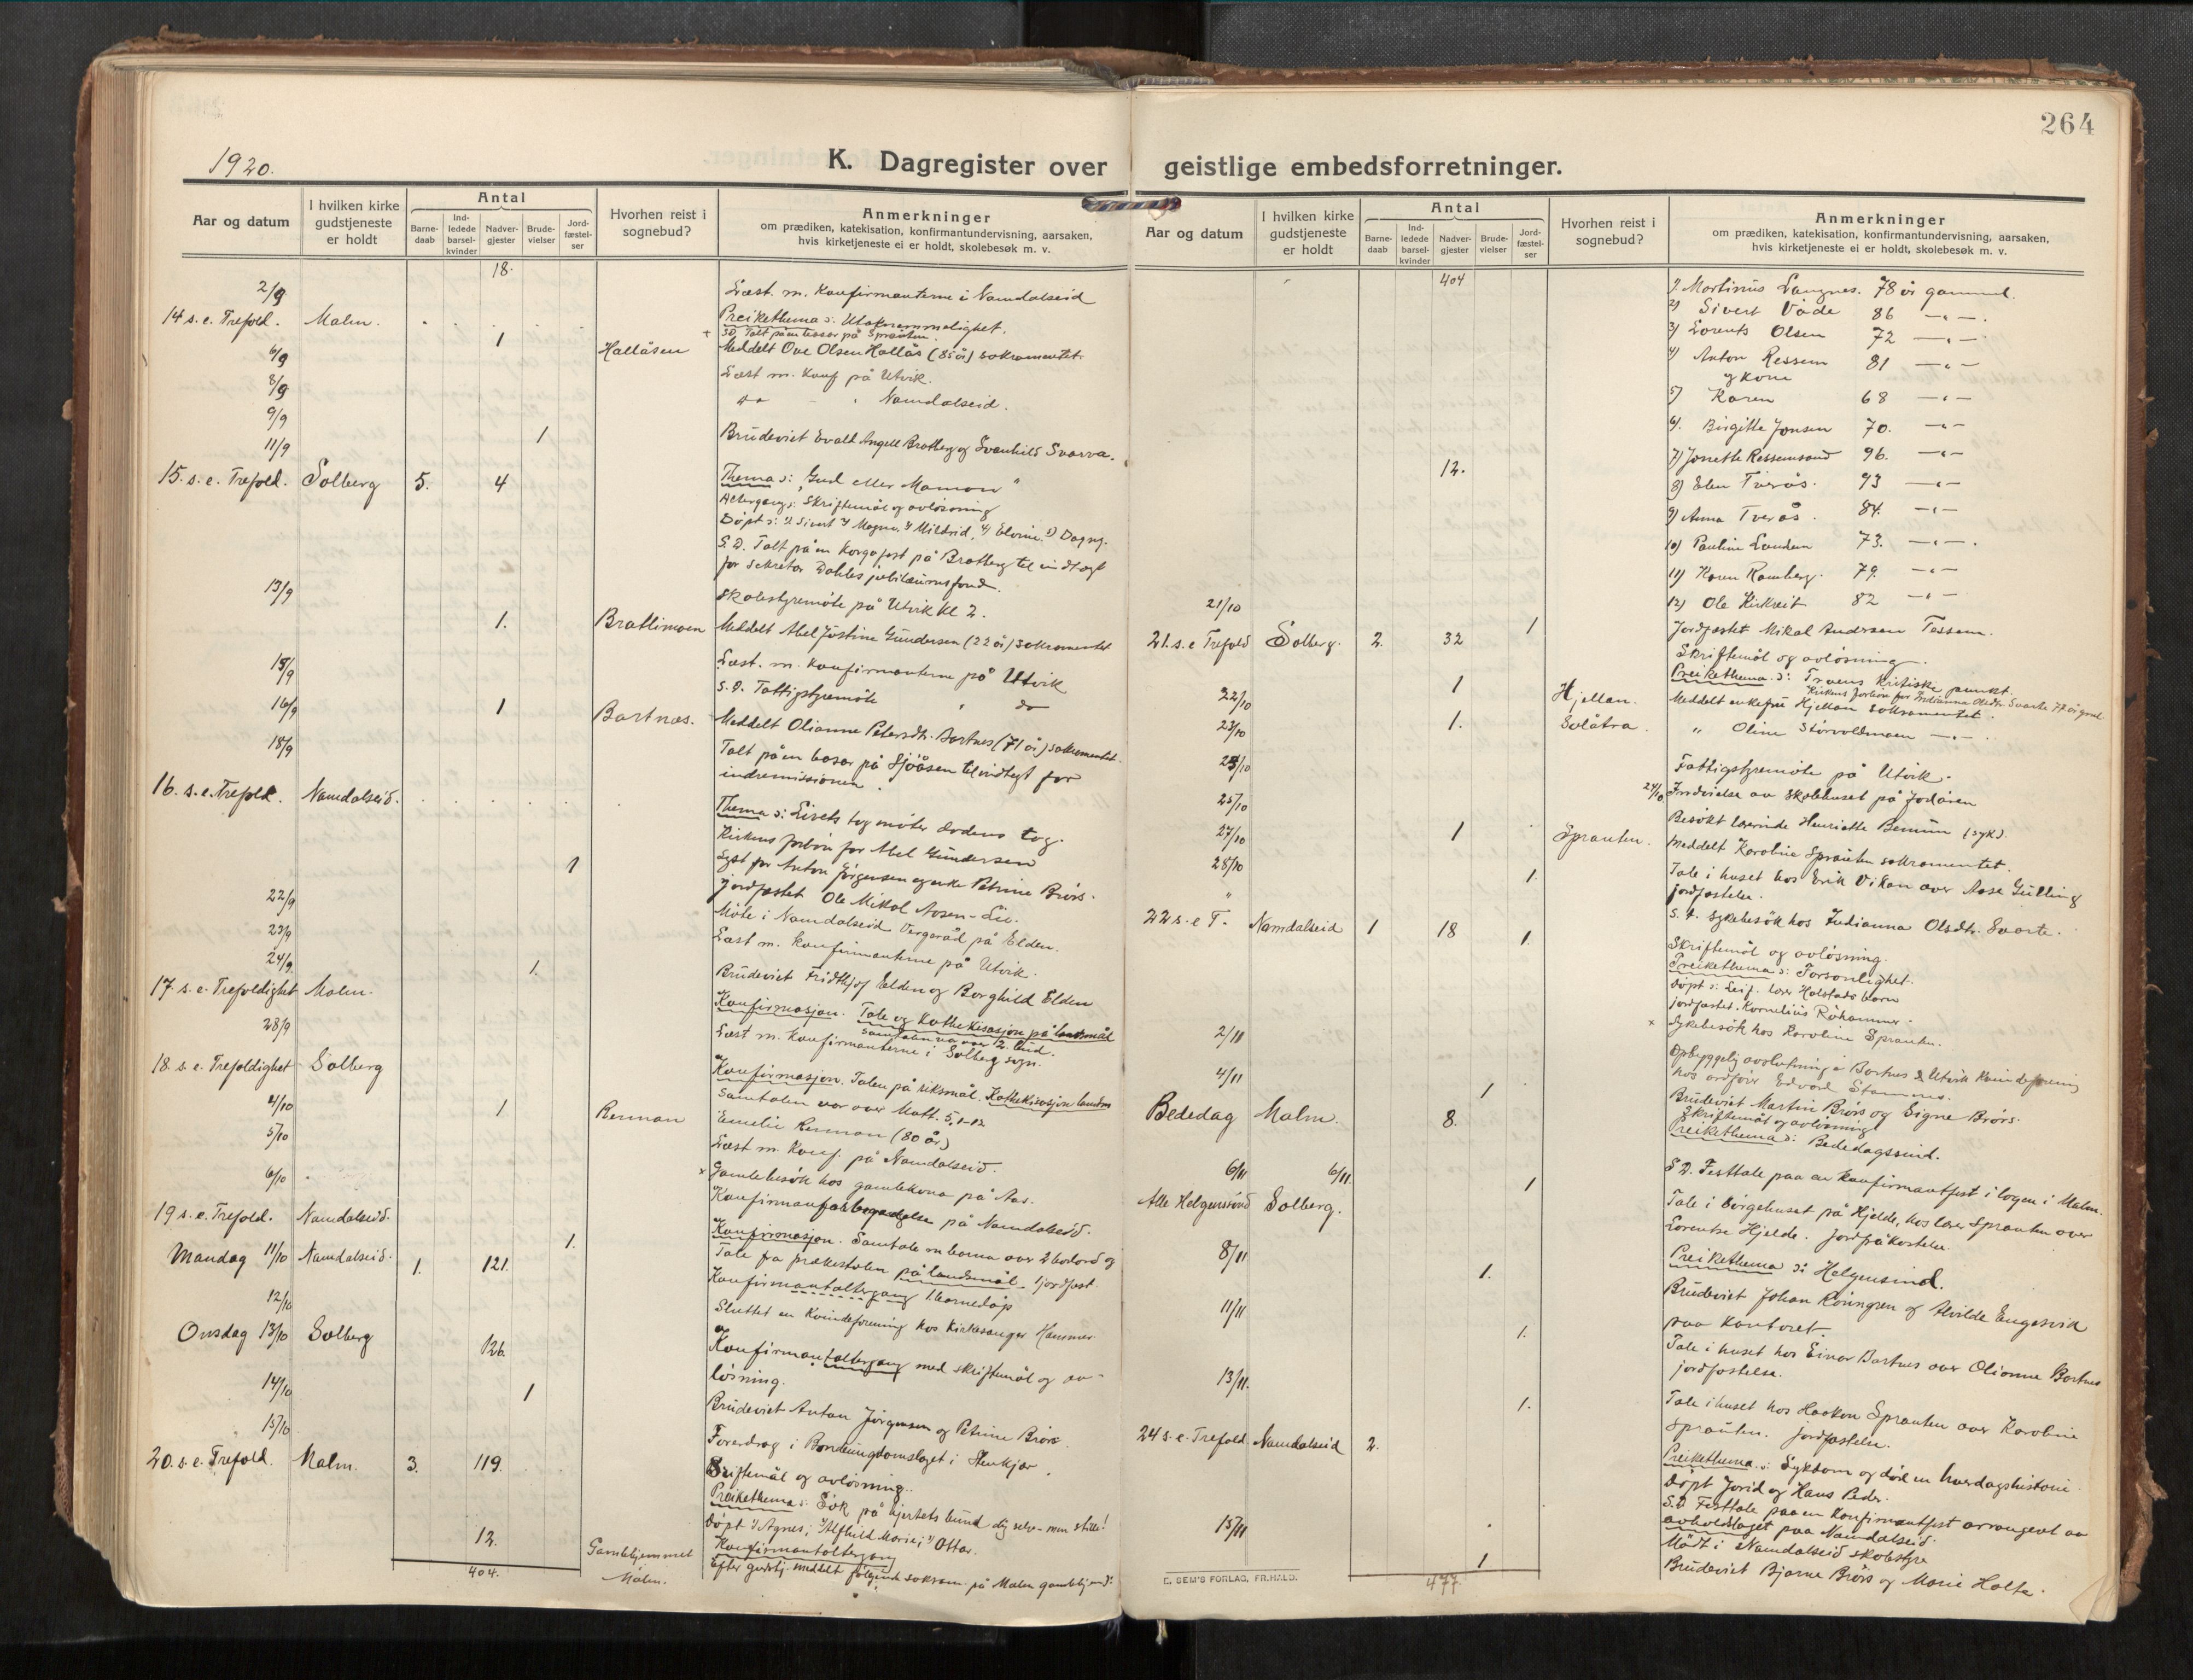 1920.
K. Dagregister over
Aar og datum
I hvilken kirke gudstjeneste er holdt
Antal
Barne-daab
Ind-ledede barsel-kvinder
Nadver-gjester
Brude-vielser
Jord-fæstel-ser
Hvorhen reist i sognebud?
Anmerkninger
om prædiken, katekisation, konfirmantundervisning, aarsaken,
hvis kirketjeneste ei er holdt, skolebesøk m. v.
18.
2/9 Læst. m. Konfirmanterne i Namdalseid
14 s. e. Trefold. Malm. Preikethema:
S.D. Talt på en på Sprauten.
6/9 1 Hallåsen Meddelt Ove Olsen Hallås (85 år) sakramentet.
8/9 Læst m. Konf på Utvik.
9/9 do - Namdalseid.
11/9 1 Brudeviet Evald Angell Bratberg og Svanhild Svarva.
15. s. e. Trefold. Solberg 5. 4 Thema: "Gud eller Mamon"
Altergang: Skriftemål og avløsning
Döpt: 1) Sivert 2) Magne 3) Mildrid, 4) Elvine 5) Dagny.
S.D. Talt på en Korgafest på Bratberg til indtægt
for sekretær Dahles jubilæumsfond.
13/9 Skolestyremöte på Utvik kl 2.
1. Bratlimoen Meddelt Abel Jüstine Gundersen (22 år) sakramentet
15/9 Læst. m. Konfirmanterne på Utvik
S.D. Fattigstyremöte do
16/9 1 Bartnæs. Meddelt Olianne Petersdtr. Bartnes (71 år) sakramentet.
18/9 Talt på en basar på Sjöåsen til indtægt for
indremissionen.
16. s. e. Trefold. Namdalseid. Thema: Livets tog möter dödens tog.
Kirkens forbön for Abel Gundersen
Lyst for Anton Jörgensen og enke Petrine Brörs.
1 jordfæstet Ole Mikal Aasen-Lie.
22/9 Möte i Namdalseid Vergeråd på Elden.
23/9 Læst m. konfirmanterne på Utvik.
24/9 1. Brudeviet Fridthjof Elden og Borghild Elden
17. s. e. Trefoldighet Malm. Konfirmasjon. Tale og Kathekisasjon på landsmål
Samtalen var over 2. bud.
28/9 Læst m. Konfirmanterne i Solberg sogn.
18. s. e. Trefoldighet Solberg Konfirmasjon. Talen på riksmål. Kathekisasjon landsm
Samtalen var over Matt. 5, 1-12
4/10 1 Renman Emelie Renman (80 år)
5/10 Læst m. Konf. på Namdalseid.
× Gamlebesök hos gamlekona på Aas.
6/10 Konfirmantforberedelse på Namdalseid.
19 s. e. Trefold. Namdalseid. 1. Konfirmasjon. Samtale m barna over 2 bordord og
Tale fra prækestolen på landsmål. 1 jordfæst
Mandag 11/10 Namdalseid. 1. 121. Konfirmantaltergang 1. barnedåp
12/10 Sluttet en Kvindeforening hos Kirkesanger Hammer
Onsdag 13/10 Solberg 126. Konfirmantaltergang med skriftemål og av-
løsning.
14/10 1 Brudeviet Anton Jörgensen og Petrine Brörs
15/10 Foredrag i Bondeungdomslaget i Stenkjær.
20. s. e. Trefold. Malm. 3. 119. Skriftemål og avløsning.
Preikethema: Søk på hjertets bund dig selv - men stille!
Döpt 1) Agnes; 2) Alfhild Marie; 3) Ottar.
12. Konfirmantaltergang
Gamlehjemmet Malm. Efter gudstj. meddelt følgende sakram. på Malm gamlehjem:
404.
264
geistlige embedsforretninger.
Aar og datum
I hvilken kirke gudstjeneste er holdt
Antal
Barne-daab
Ind-ledede barsel-kvinder
Nadver-gjester
Brude-vielser
Jord-fæstel-ser
Hvorhen reist i sognebud?
Anmerkninger
om prædiken, katekisation, konfirmantundervisning, aarsaken,
hvis kirketjeneste ei er holdt, skolebesøk m. v.
404 1) Martinus Langnes. 78 år gammel.
2) Sivert Våde 86 -"-
3) Lorents Olsen 72 -"-
4) Anton Ressem 81 -"-
og kone
5) Karen 68 -"-
6) Birgitte Jonsen 70. -"-
12. 7) Jonette Ressemsand 96. -"-
8) Elen Tverås. 93 -"-
9) Anna Tverås. 84. -"-
10) Pauline Landem 73. -"-
11) Karen Ramberg. 79. -"-
12) Ole Kirkreit 82 -"-
21/10 1 Jordfæstet Mikal Andersen Tessem.
21. s. e Trefold Solberg. 2. 32 Skriftemål og avløsning.
Preikethema: Troens kritiske punkt.
Kirkens forbön for Indianna Olsdtr. Svarte 77 år gml.
22/10 1 Hjellan. Meddelt enkefru Hjellan sakramentet.
23/10 1. Solåtra. " Oline Störvoldmoen -"-
25/10 Fattigstyremöte på Utvik.
24/10 Indvielse av Skolehuset på Jodåren
25/10 Besökt lærerinde Henriette Benum (syk).
27/10 1 Sprauten. Meddelt Karoline Sprauten sakramentet.
28/10 1. Tale i huset hos Erik Vikan over Aase Gulling
jordfæstelse.
" S.D. Sykebesök hos Indianna Olsdtr. Svarte.
22 s. e T. Namdalseid 1 18 1. Skriftemål og avløsning.
Preikethema: Forsonlighet.
Döpt: Leif. lærer Holstads barn
jordfæstet. Kornelius Råhammer.
× Sykebesök hos Karoline Sprauten.
2/11 Opbyggelig avslutning i Bartnes & Utvik Kvindeforening
hos ordförer Edvard Stamnes.
4/11 1 Brudeviet Martin Brörs og Signe Brörs.
Bededag Malm. 8. Skriftemål og avløsning
Preikethema: Bededagssind.
S.D. Festtale paa en konfirmantfest i logen i Malm.
6/11 6/11. 1 Tale i Sörgehuset på Hjelde, hos lærer Sprauten over
Lorentse Hjelde. Jordpåkastelse
Alle Helgensönd Solberg. Preikethema: Helgensind.
8/11 1. Brudeviet Johan Köningren og Alvilde Engesvik
paa kontoret.
11/11 1. Tale i huset hos Einar Bartnes over Olianne Bartnes
jordfæstelse.
13/11. 1. Tale i huset hos Haakon Sprauten over Karoline
Sprauten. jordfæstelse.
24 s. e. Trefold. Namdalseid 2. Preikethema: Sykdom og död en hverdagshistorie
Döpt Jorid og Hans Peder.
S.D Festtale paa en Konfirmantfest arrangert av
avholdslaget paa Namdalseid.
15/11 Mödt i Namdalseid skolestyre
1 Brudeviet Bjarne Brörs og Marie Holte.
E. SEM'S FORLAG, FR.HALD.
477.